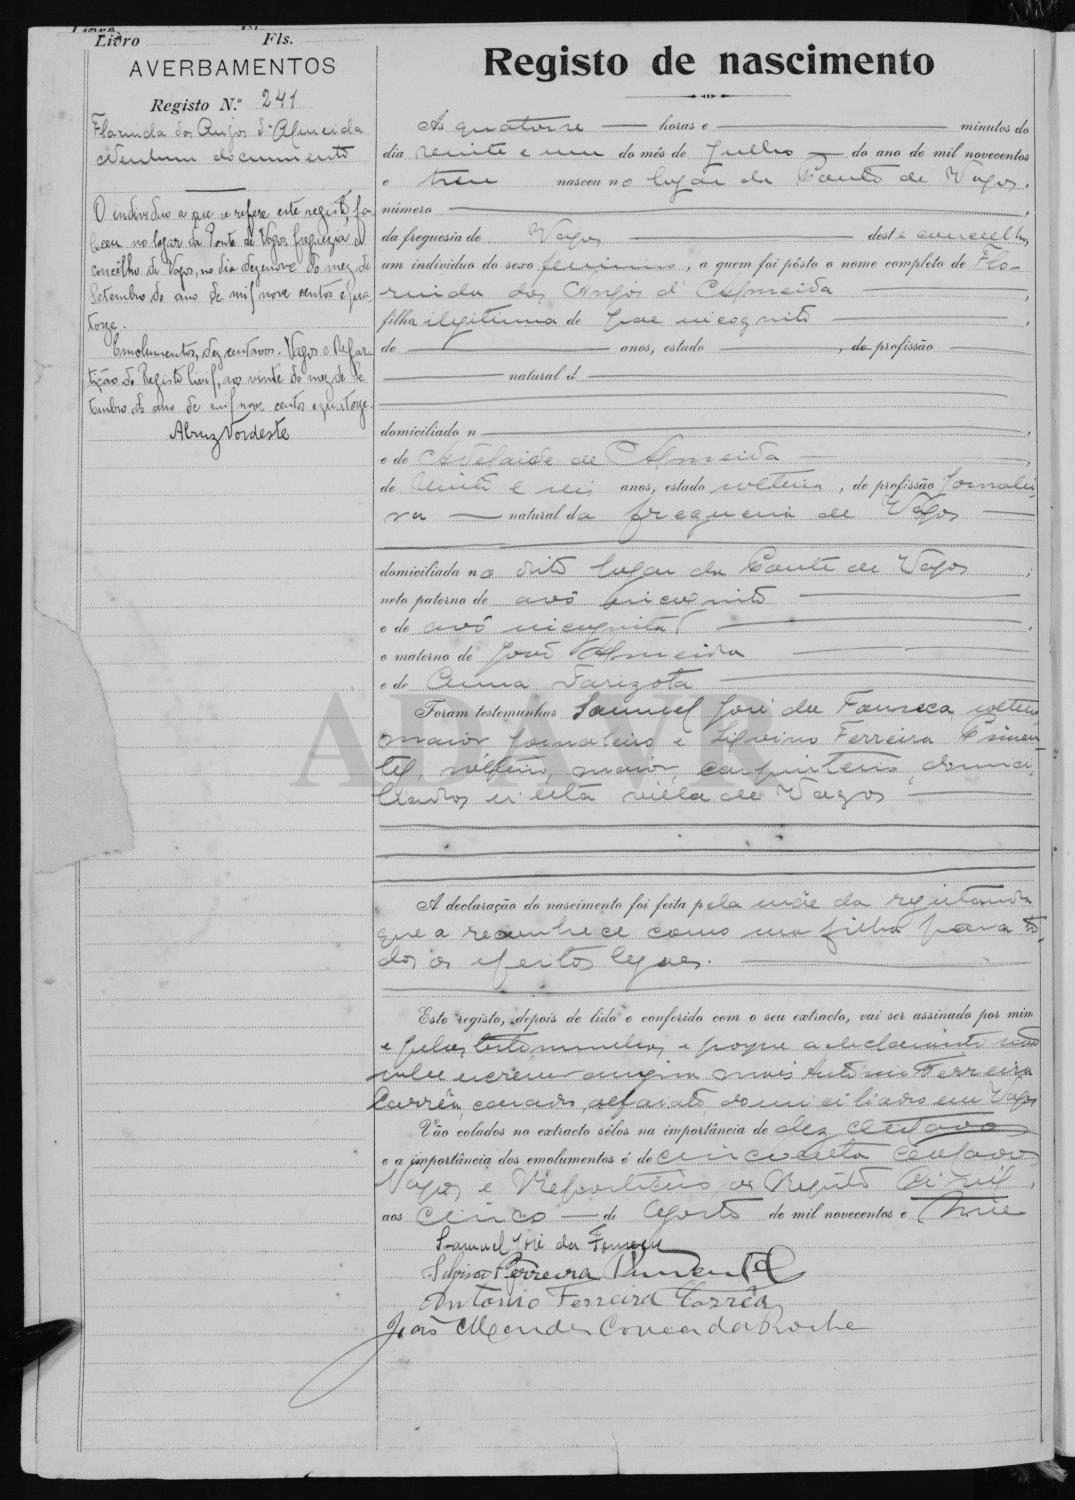 Livro Fls.
AVERBAMENTOS
Registo N.º 241
Florinda dos Anjos d'Almeida
Nenhum documento
O individuo a que se refere este registo, fa-
leceu no logar da Ponte de Vagos, freguezia e
concêlho de Vagos, no dia dezenove do mez de
Setembro do ano de mil nove centos e qua-
torze.
Emolumentos, dez centavos. Vagos e Repar-
tição do Registo Civil, aos vinte do mez de Se-
tembro do ano de mil nove centos e quatorze.
Registo de nascimento
Ás quatorze horas e minutos do
dia vinte e um do mês de Julho do ano de mil novecentos
e treze nasceu no lugar da Ponte de Vagos,
número
da freguesia de Vagos deste concelho,
um indivíduo do sexo feminino, a quem foi pôsto o nome completo de Flo-
rinda dos Anjos d'Almeida
filha ilegitima de pae incognito
de anos, estado , de profissão
natural d
domiciliado n
e de Adelaide de Almeida
de vinte e seis anos, estado solteira, de profissão jornalei-
ra natural da freguesia de Vagos
domiciliada no dito lugar da Ponte de Vagos ;
neto paterno de avô incognito
e de avó incognita
e materno de José d'Almeida
e de Anna Farizota
Foram testemunhas Samuel José da Fonseca, solteiro,
maior, jornaleiro e Silvino Ferreira Pimen-
tel, solteiro, maior, carpinteiro, domici-
liados n'esta villa de Vagos
A declaração do nascimento foi feita pela mãe da registanda
que a reconhece como sua filha para to-
dos os efeitos legaes.
Este registo, depois de lido e conferido com o seu extracto, vai ser assinado por mim
e pelas testemunhas e porque a declarante não
sabe escrever assigna mais Antonio Ferreira
Corrêa, casado, alfaiate, domiciliado em Vagos
Vão colados no extracto sêlos na importância de dez centavos
e a importância dos emolumentos é de cincoenta centavos
Vagos e Repartição do Registo Civil,
aos cinco de Agosto de mil novecentos e treze
Samuel José da Fonseca
Silvino Ferreira Pimentel
Antonio Ferreira Corrêa
João Mendes Correa da Rocha
ADAVR